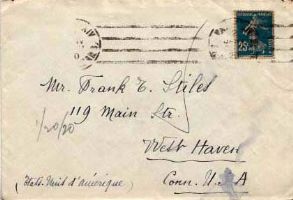 25
Mr. Frank E. Stiles
119 Main Str.
1/20/20
West Haven
Conn. U.S.A
(Etats-Unis d'Amérique)